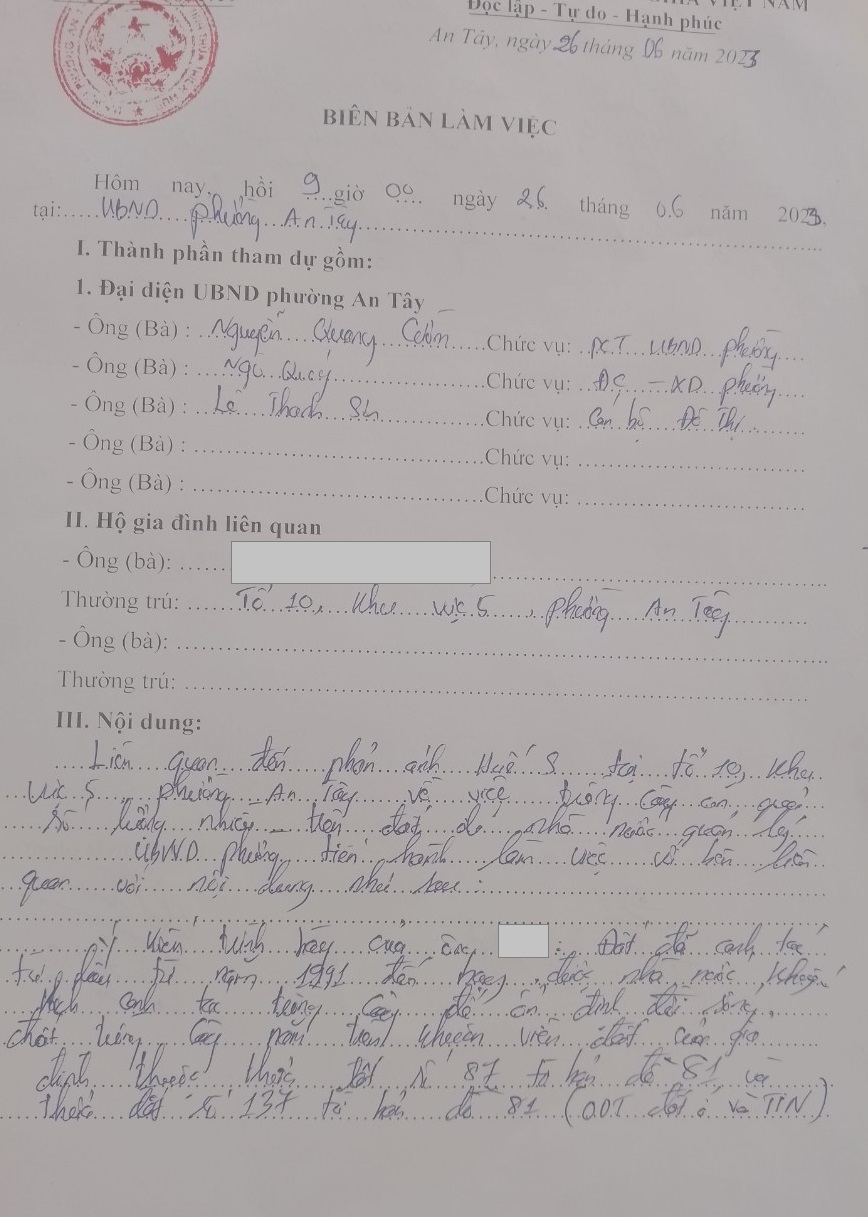 VIỆT NAM
Độc lập - Tự do - Hạnh phúc
An Tây, ngày 26 tháng 06 năm 2023
BIÊN BẢN LÀM VIỆC
Hôm nay, hồi 9 giờ 00 ngày 26 tháng 06 năm 2023.
tại: UBND phường An Tây
I. Thành phần tham dự gồm:
1. Đại diện UBND phường An Tây
- Ông (Bà) : Nguyễn Quang Chức vụ: PCT UBND phường
- Ông (Bà) : Ngô Quý Chức vụ: ĐC - XD phường
- Ông (Bà) : Lê Thanh Chức vụ: Cán bộ Đô Thị
- Ông (Bà) : Chức vụ:
- Ông (Bà) : Chức vụ:
II. Hộ gia đình liên quan
- Ông (bà):
Thường trú: Tổ 10, Khu vực 5, phường An Tây
- Ông (bà):
Thường trú:
III. Nội dung:
Liên quan đến phản ánh Huế S tại tổ 10, khu
vực 5, phường An Tây về việc trồng cây
số lượng nhiều trên đất do nhà nước quản lý.
UBND phường tiến hành làm việc với bên liên
quan với nội dung như sau:
Ý kiến trình bày của ông : Đất đã canh tác
từ năm 1991 đến nay, được nhà nước khuyến
khích canh tác trồng cây để ổn định đời sống,
trồng cây nằm trên khuôn viên đất của gia
đình thuộc thửa đất số 87 tờ bản đồ 81, và
thửa đất số 137 tờ bản đồ 81 (ODT đất ở và TIN)